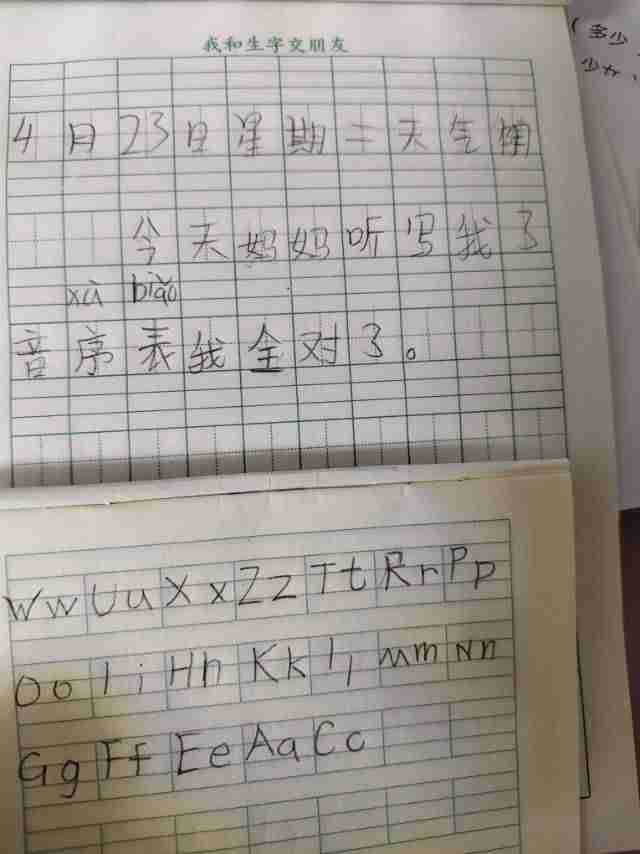 我和生字交朋友
(多少
少女、
4月23日星期二天气
今天妈妈听写我了
xù biǎo
音序表我全对了。
Ww Uu Xx Zz Tt Rr Pp
Oo Ii Hh Kk Mm Nn
Gg Ff Ee Aa Cc